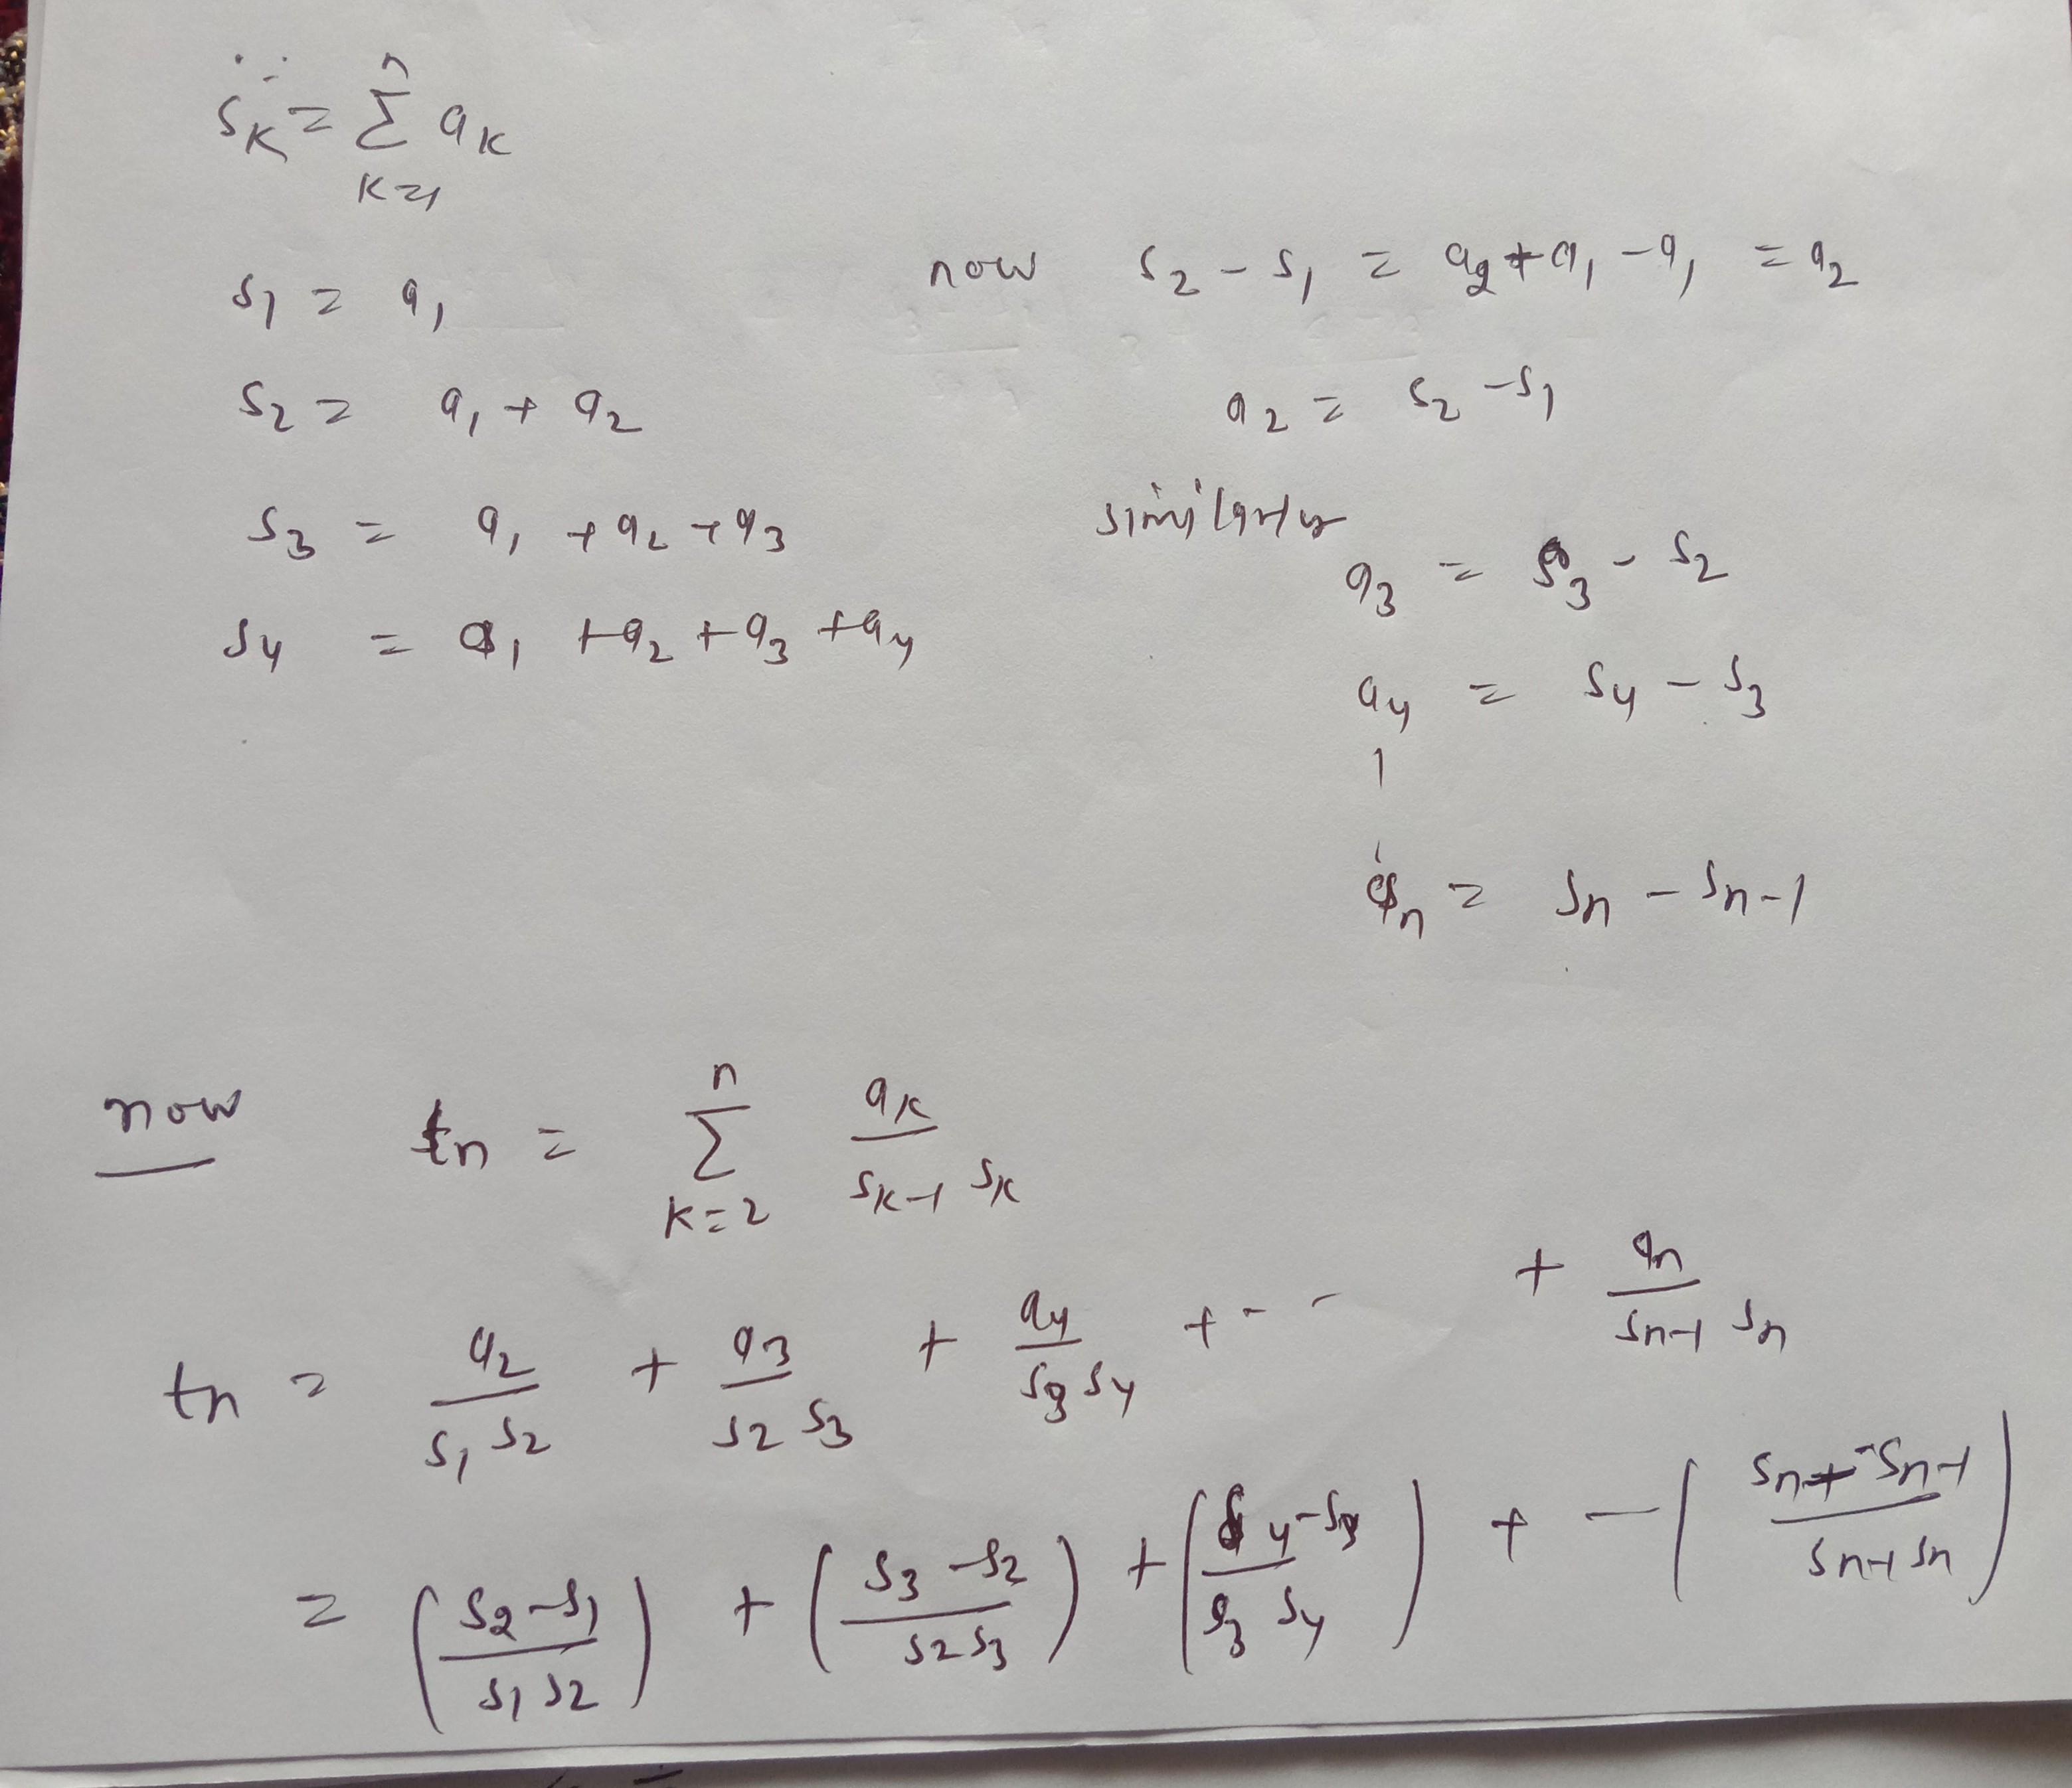 ∵ n
s_k = Σ a_k
k=1
s_1 = a_1
s_2 = a_1 + a_2
s_3 = a_1 + a_2 + a_3
s_4 = a_1 + a_2 + a_3 + a_4
now s_2 - s_1 = a_2 + a_1 - a_1 = a_2
a_2 = s_2 - s_1
similarly
a_3 = s_3 - s_2
a_4 = s_4 - s_3
a_n = s_n - s_{n-1}
now t_n = \sum_{k=2}^{n} \frac{a_k}{s_{k-1} s_k}
t_n = \frac{a_2}{s_1 s_2} + \frac{a_3}{s_2 s_3} + \frac{a_4}{s_3 s_4} + - - + \frac{a_n}{s_{n-1} s_n}
= (\frac{s_2 - s_1}{s_1 s_2}) + (\frac{s_3 - s_2}{s_2 s_3}) + (\frac{s_4 - s_3}{s_3 s_4}) + - (\frac{s_n - s_{n-1}}{s_{n-1} s_n})